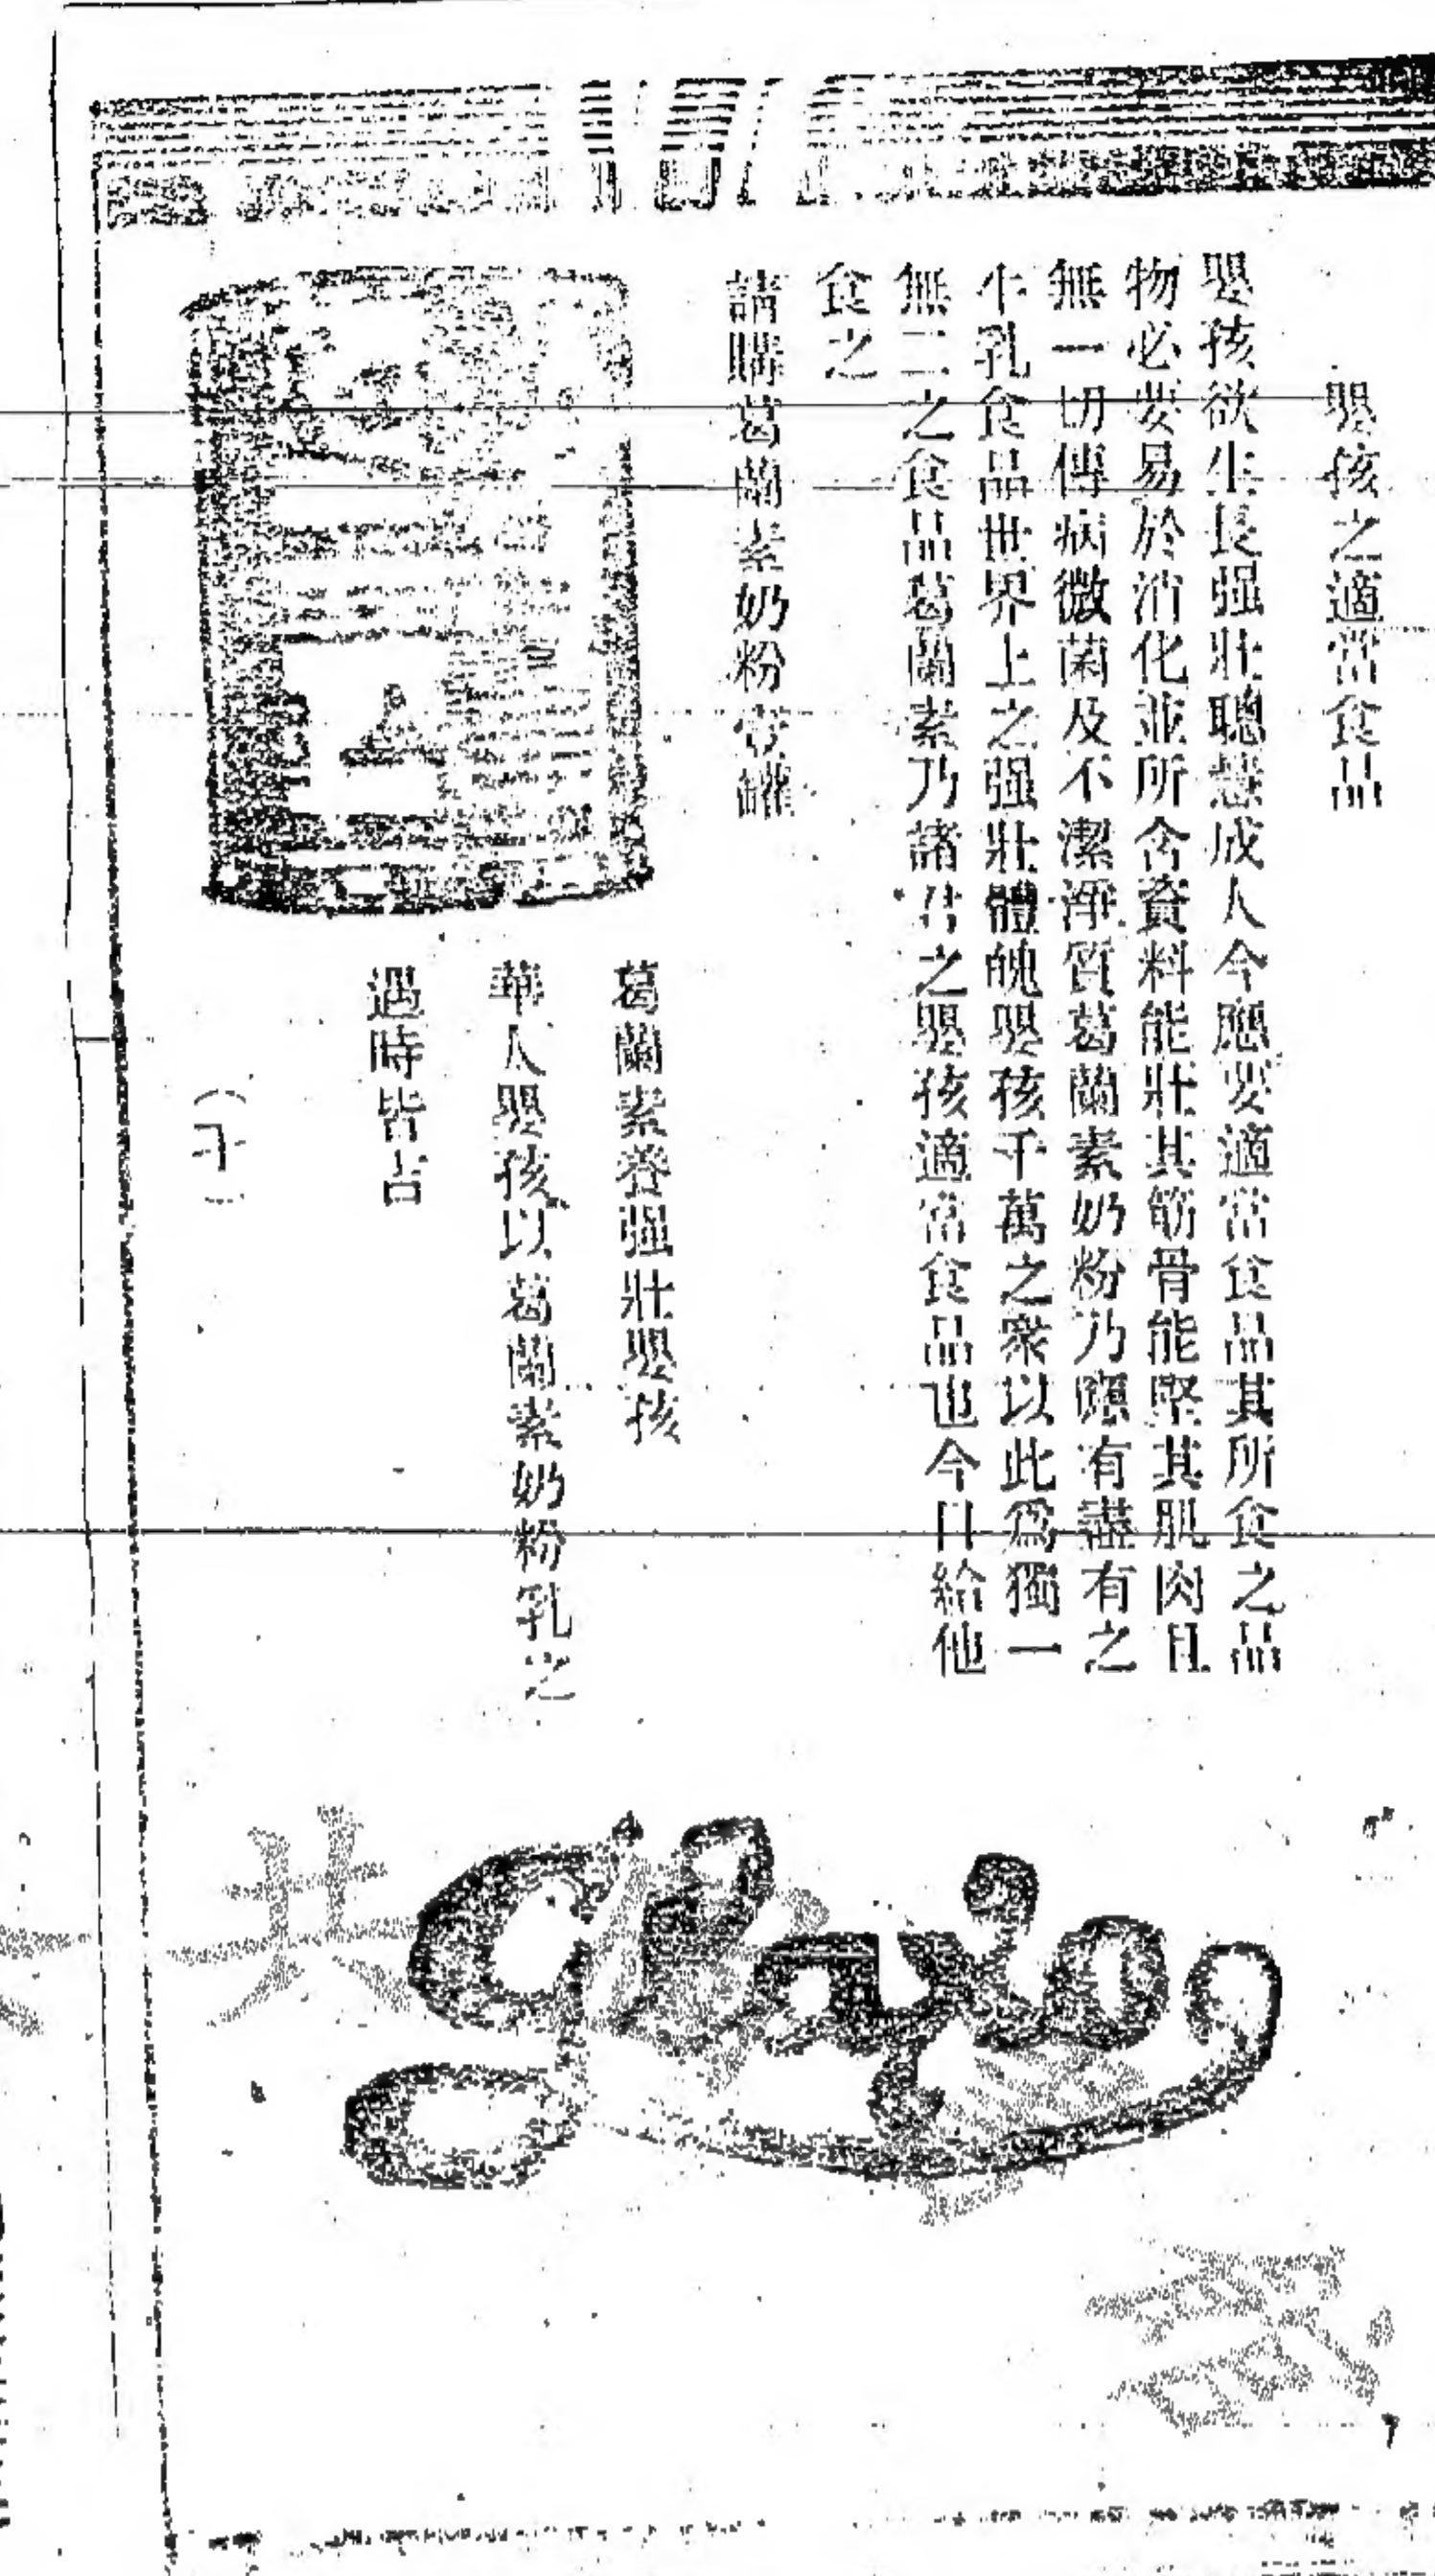 嬰孩之適當食品
嬰孩欲生長强壯聰慧成人今應要適當食品其所食之品
物必要易於消化並所含資料能壯其筋骨能堅其肌肉且
無一切傳病微菌及不潔淨質葛蘭素奶粉乃應有盡有之
牛乳食品世界上之强壯體魄嬰孩千萬之衆以此爲獨一
無二之食品葛蘭素乃諸君之嬰孩適當食品也今日給他
食之
請購葛蘭素奶粉壹罐
葛蘭素養强壯嬰孩
華人嬰孩以葛蘭素奶粉乳之
過時皆吉
Glaxo